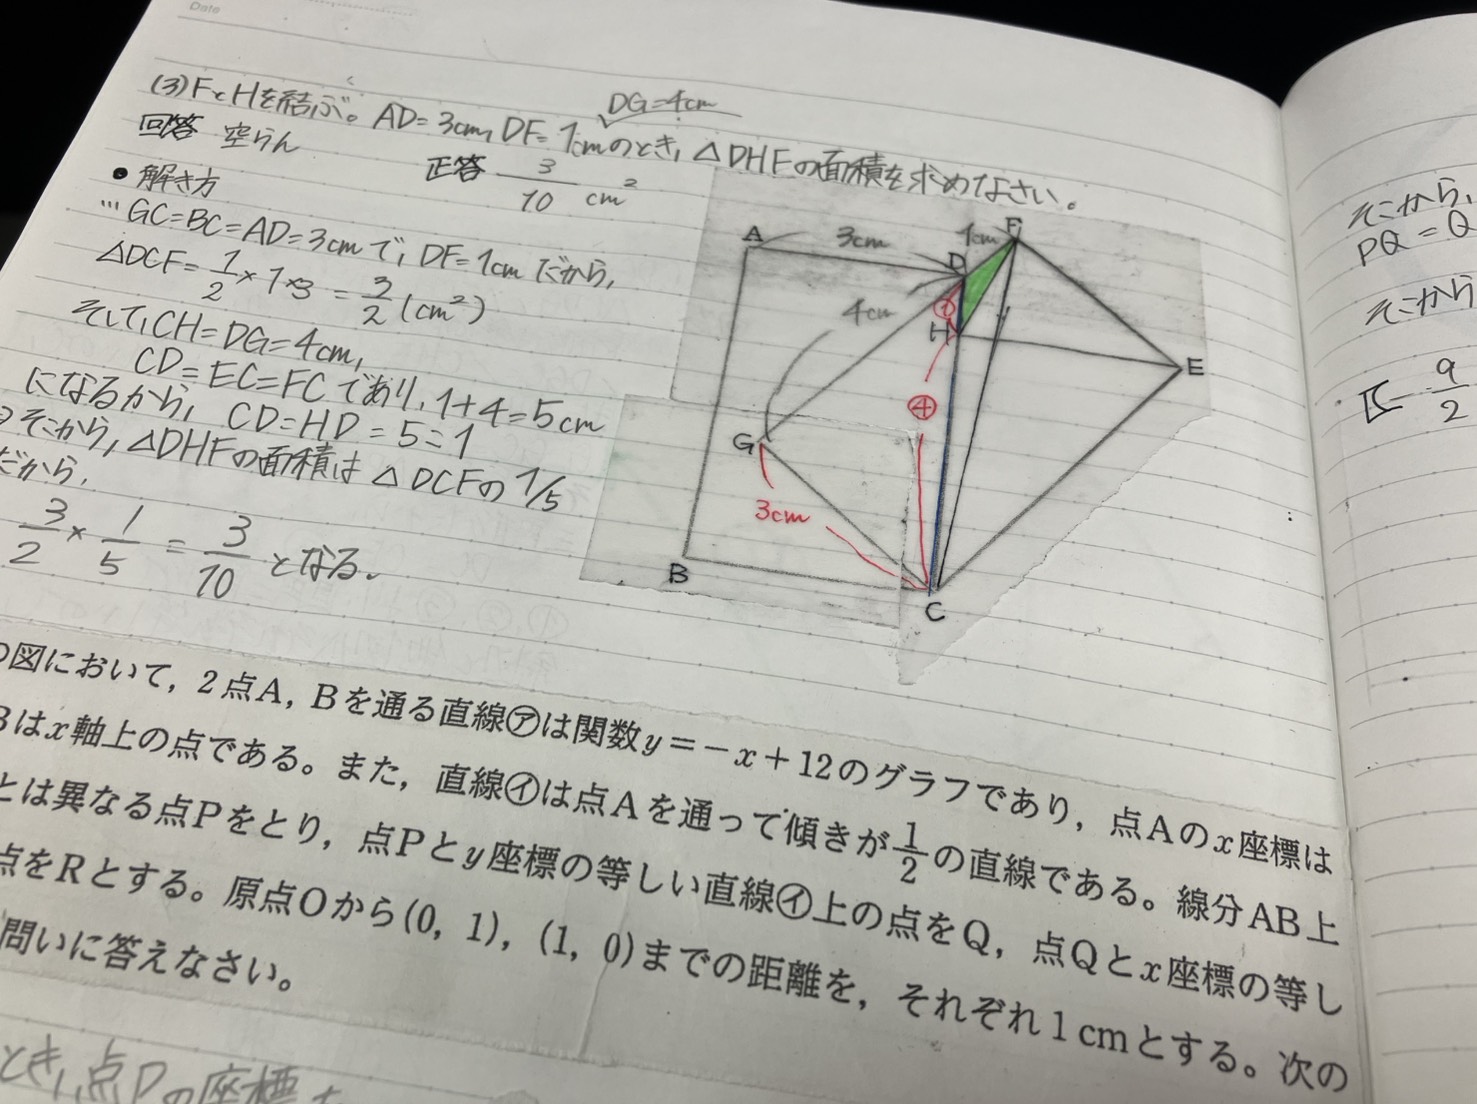 Date
(3)FとHを結ぶ。AD=3cm, DF=1cmのとき, △DHFの面積を求めなさい。
DG=4cm
回答 空らん
正答 3/10 cm²
• 解き方
… GC=BC=AD=3cmで, DF=1cmだから,
△DCF=1/2×1×3=3/2(cm²)
そして, CH=DG=4cm,
CD=EC=FCであり, 1+4=5cm
になるから, CD=HD=5=1
そこから, △DHFの面積は△DCFの1/5
だから,
3/2×1/5=3/10となる。
A
3cm
1cm
F
D
4cm
①
H
E
④
G
3cm
B
C
の図において, 2点A, Bを通る直線㋐は関数y=-x+12のグラフであり, 点Aのx座標は
Bはx軸上の点である。また, 直線㋑は点Aを通って傾きが1/2の直線である。線分AB上
とは異なる点Pをとり, 点Pとy座標の等しい直線㋑上の点をQ, 点Qとx座標の等し
点をRとする。原点Oから(0, 1), (1, 0)までの距離を, それぞれ1cmとする。次の
問いに答えなさい。
とき, 点Pの座標を
そこから,
PQ=Q
そこから
9/2